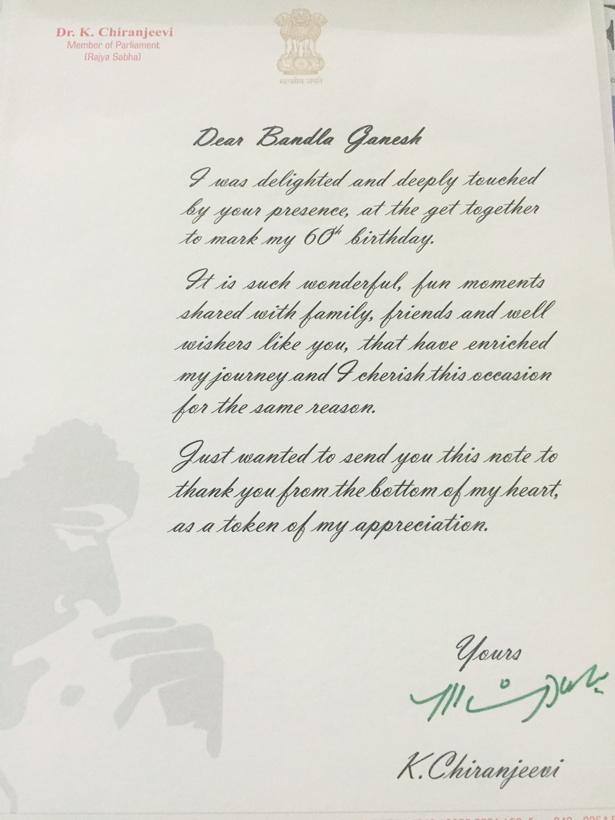 Dr. K. Chiranjeevi
Member of Parliament
(Rajya Sabha)
सत्यमेव जयते
Dear Bandla Ganesh
I was delighted and deeply touched
by your presence, at the get together
to mark my 60th birthday.
It is such wonderful, fun moments
shared with family, friends and well
wishers like you, that have enriched
my journey and I cherish this occasion
for the same reason.
Just wanted to send you this note to
thank you from the bottom of my heart,
as a token of my appreciation.
Yours
K.Chiranjeevi